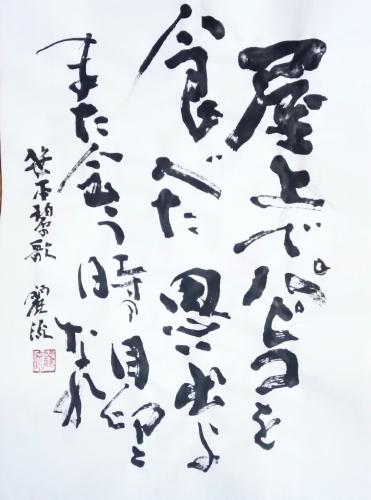 屋上でパピコを
食べた思い出よ
また会う時の目印と
なれ
笹本碧歌